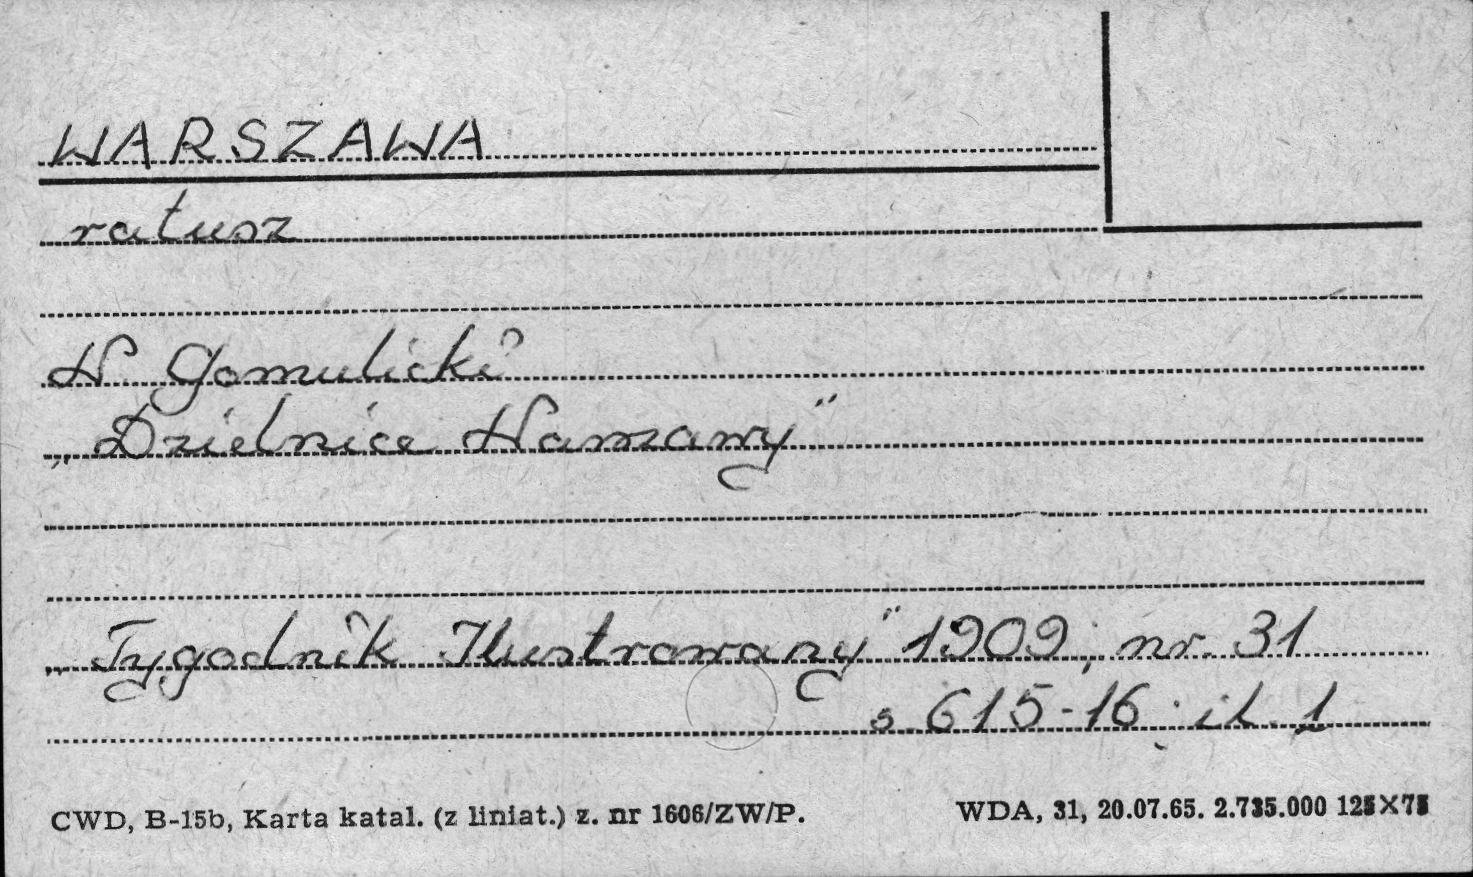 WARSZAWA
ratusz
W Gomulicki
„Dzielnice Warszawy"
„Tygodnik Ilustrowany" 1909; nr. 31
s. 615-16; il. 1
CWD, B-15b, Karta katal. (z liniat.) z. nr 1606/ZW/P. WDA, 31, 20.07.65. 2.735.000 125×75